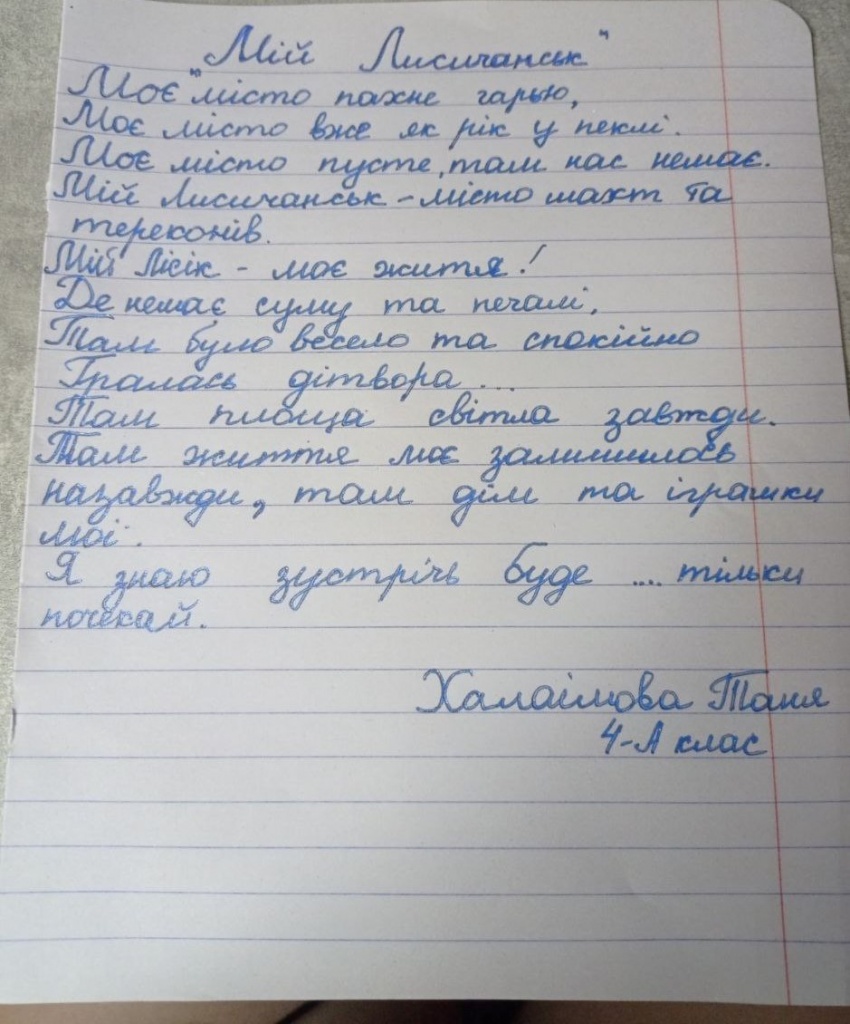 "Мій Лисичанськ"
Моє місто пахне гарью,
Моє місто вже як рік у пеклі.
Моє місто пусте, там нас немає.
Мій Лисичанськ - місто шахт та
тереконів.
Мій Лісік - моє життя!
Де немає суму та печалі,
Там було весело та спокійно
Гралась дітвора ...
Там площа світла завжди.
Там життя моє залишилось
назавжди, там дім та іграшки
мої.
Я знаю зустрічь буде .... тільки
почекай.
Халаімова Таня
4-А клас